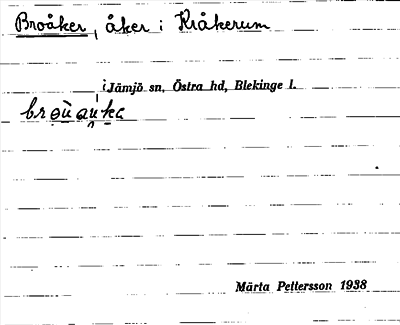 Broåker, åker i Kråkerum
i Jämjö sn, Östra hd, Blekinge l.
Märta Pettersson 1938